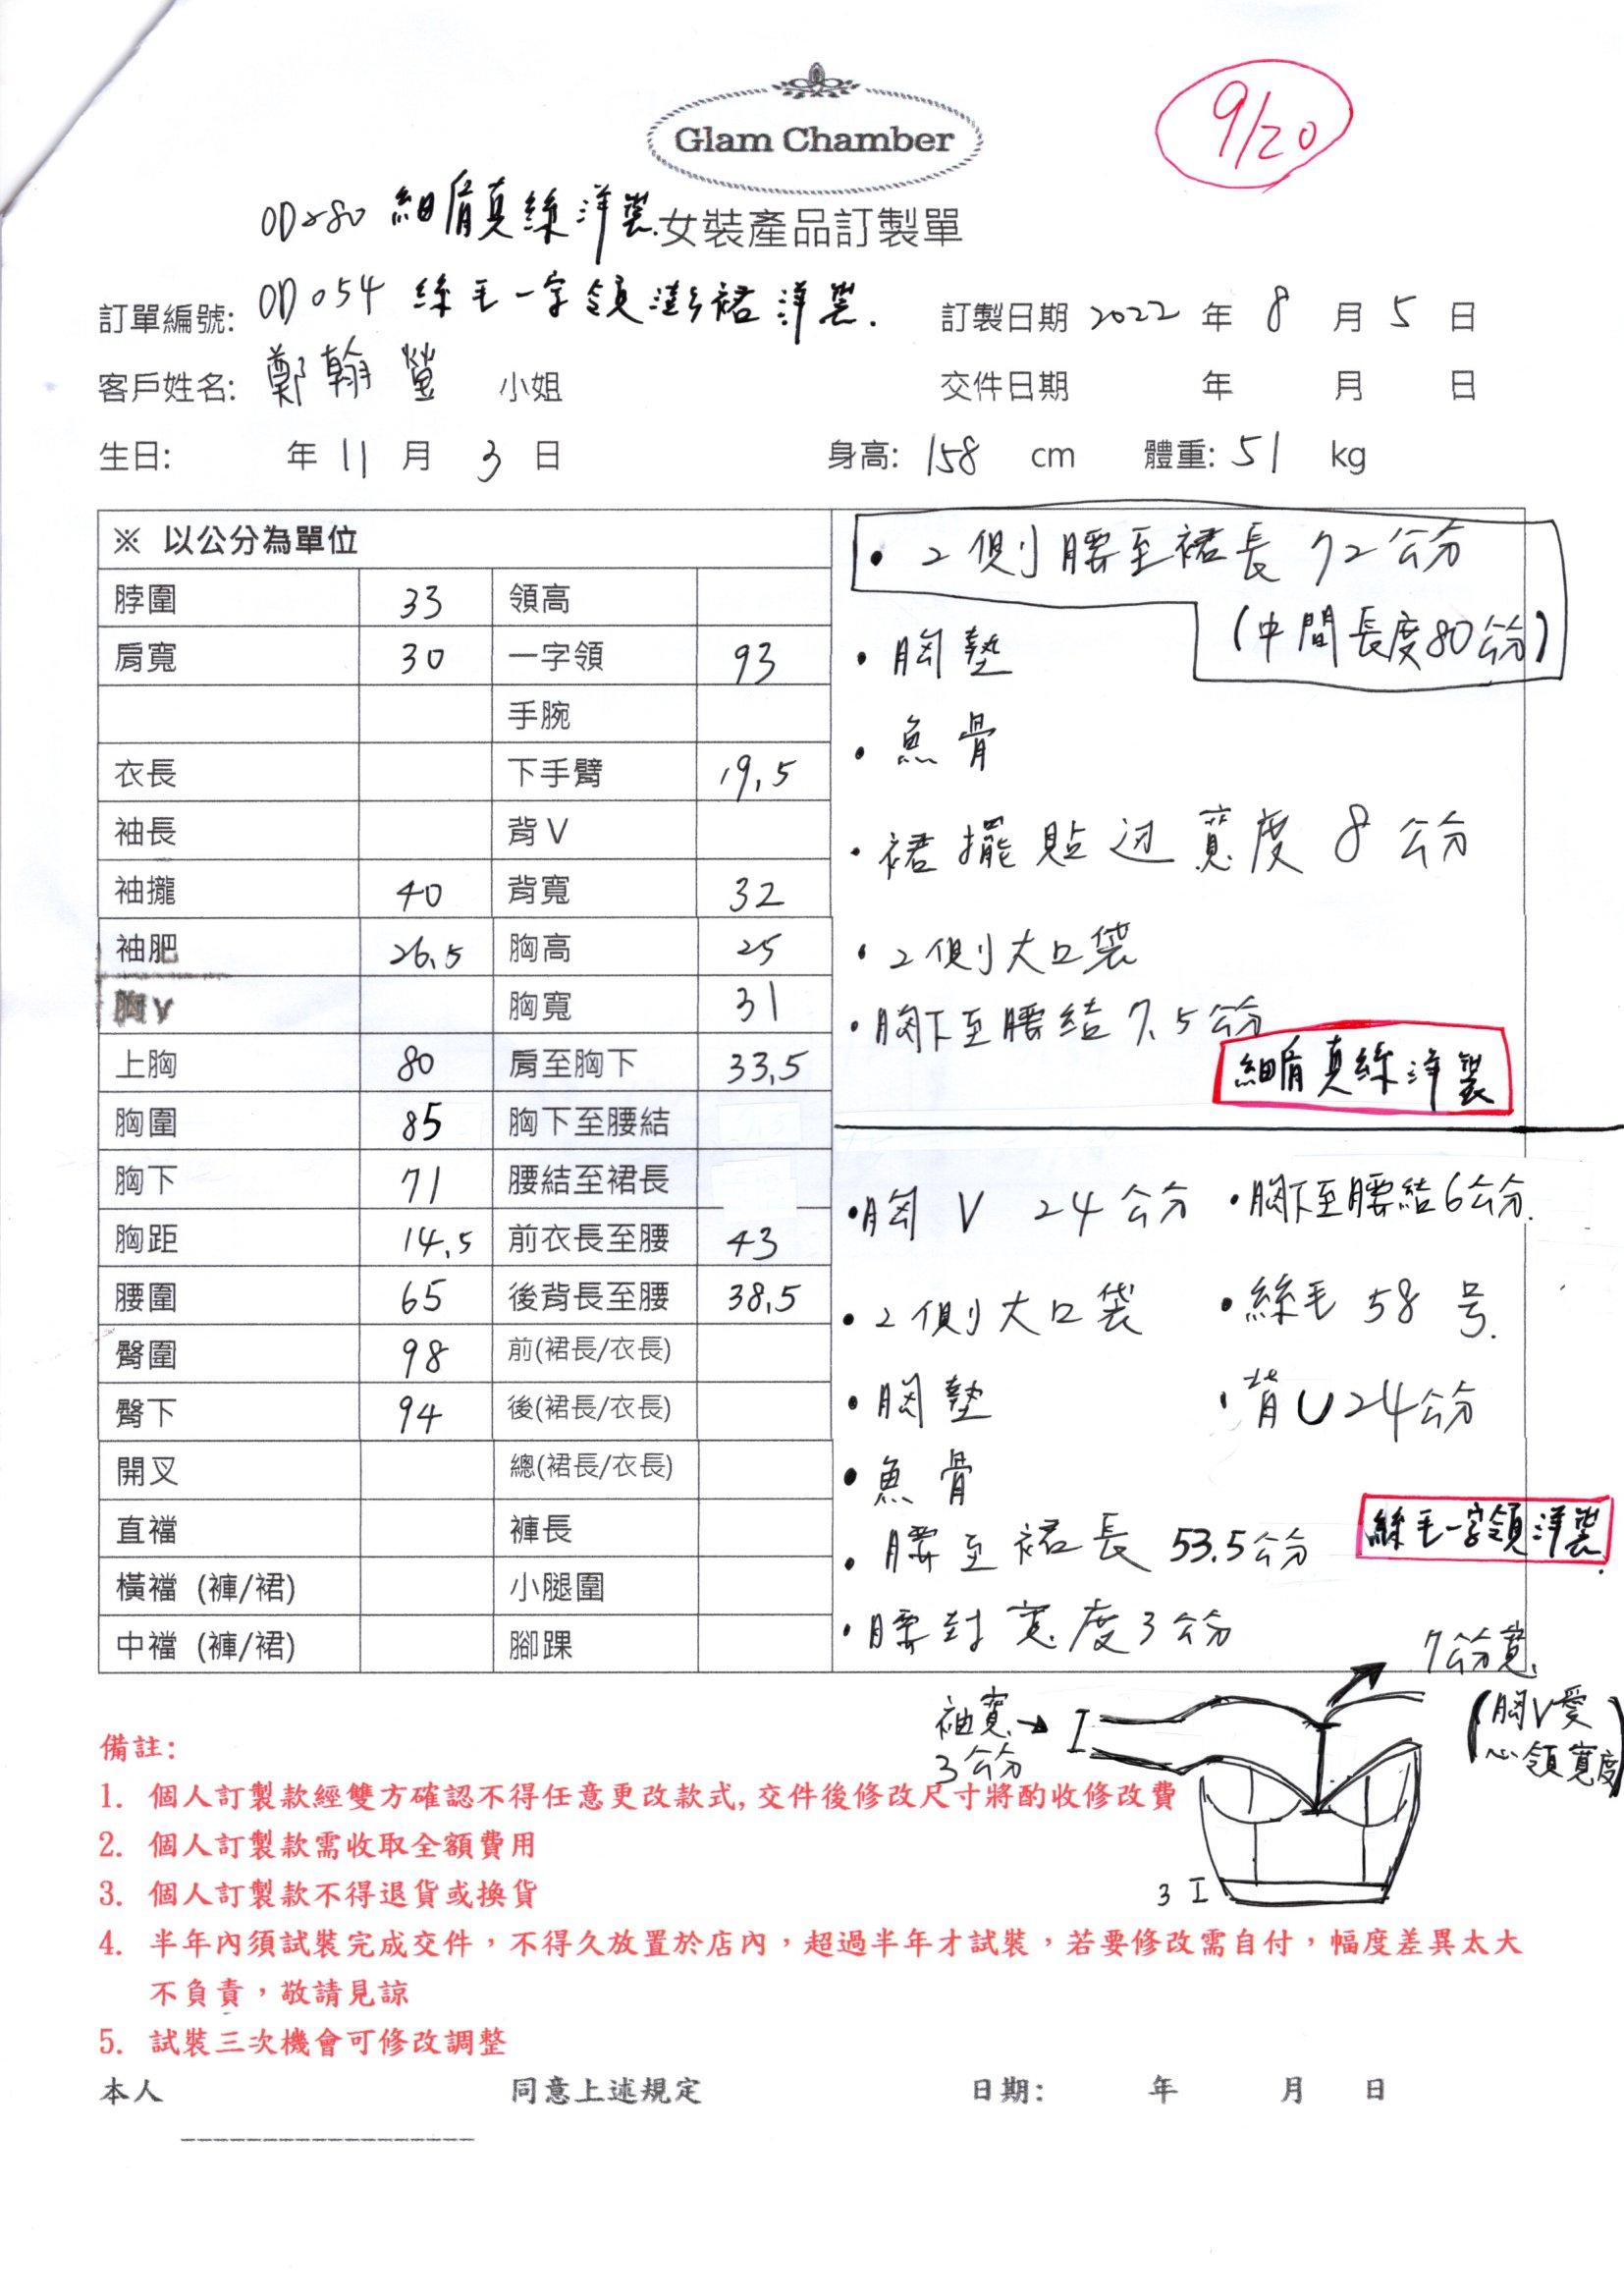 9/20
Glam Chamber
細肩真絲洋裝
女裝產品訂製單
訂單編號: OD054 絲毛一字領澎裙洋裝. 訂製日期 2022 年 8 月 5 日
客戶姓名: 鄭翰螢 小姐 交件日期 年 月 日
生日: 年 11 月 3 日 身高: 158 cm 體重: 51 kg
※ 以公分為單位
脖圍 33 領高
肩寬 30 一字領 93
手腕
衣長 下手臂 19.5
袖長 背V
袖攏 40 背寬 32
袖肥 26.5 胸高 25
胸V 胸寬 31
上胸 80 肩至胸下 33.5
胸圍 85 胸下至腰結
胸下 71 腰結至裙長
胸距 14.5 前衣長至腰 43
腰圍 65 後背長至腰 38.5
臀圍 98 前(裙長/衣長)
臀下 94 後(裙長/衣長)
開叉 總(裙長/衣長)
直襠 褲長
橫襠 (褲/裙) 小腿圍
中襠 (褲/裙) 腳踝
• 2側腰至裙長 72公分
(中間長度80公分)
• 胸墊
• 魚骨
• 裙擺貼边寬度 8 公分
• 2側大口袋
• 胸下至腰結 7.5公分
細肩真絲洋裝
• 胸 V 24公分 • 胸下至腰結6公分.
• 2側大口袋 • 絲毛 58 号.
• 胸墊 • 背U24公分
• 魚骨
• 腰至裙長 53.5公分
絲毛一字領洋裝.
• 腰封寬度3公分
7公分寬.
(胸V愛心領寬度)
袖寬 3公分
3
備註:
1. 個人訂製款經雙方確認不得任意更改款式,交件後修改尺寸將酌收修改費
2. 個人訂製款需收取全額費用
3. 個人訂製款不得退貨或換貨
4. 半年內須試裝完成交件，不得久放置於店內，超過半年才試裝，若要修改需自付，幅度差異太大
不負責，敬請見諒
5. 試裝三次機會可修改調整
本人 同意上述規定 日期: 年 月 日